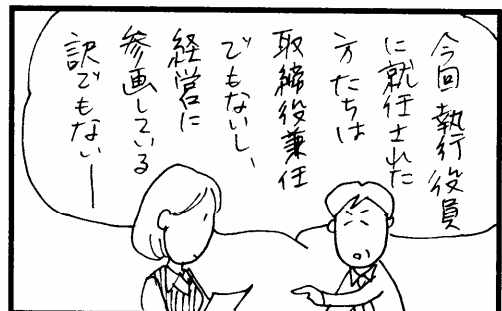 今回執行役員
に就任された
方たちは
取締役兼任
でもないし、
経営に
参画している
訳でもない―